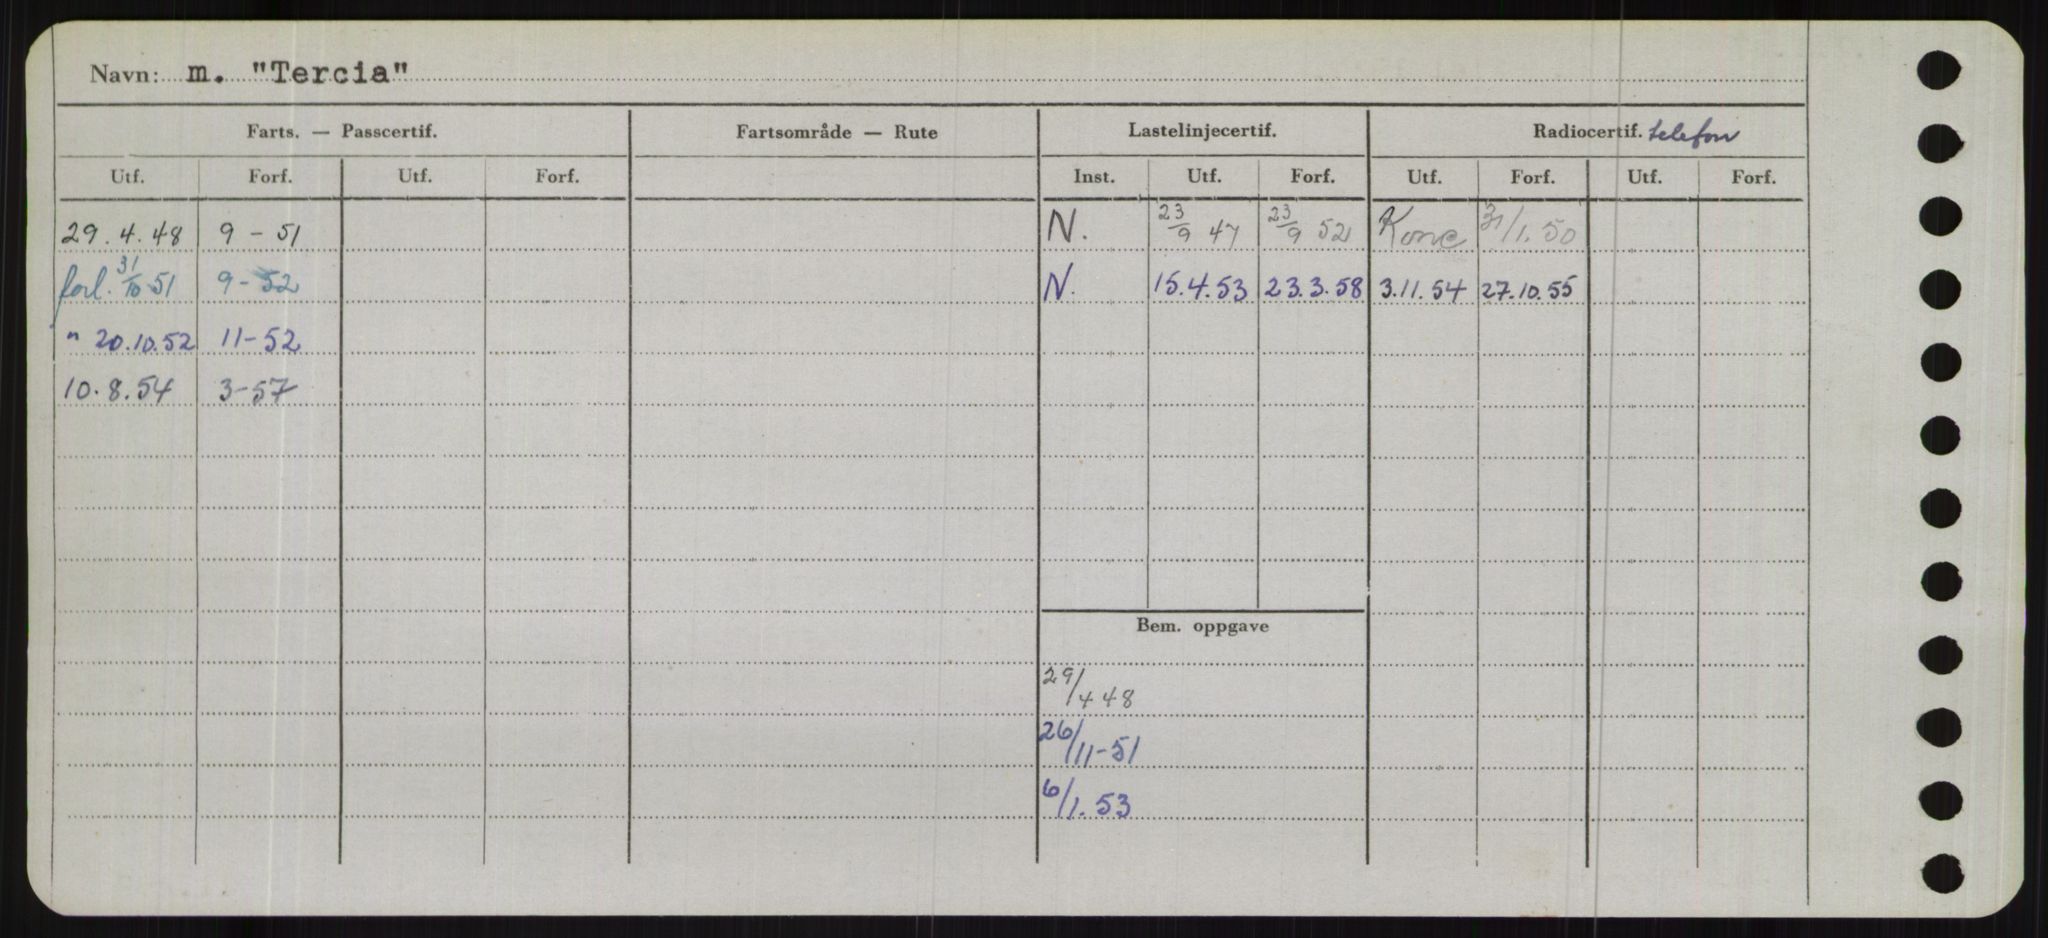 Navn: m. "Tercia"
Farts. — Passcertif. Fartsområde — Rute Lastelinjecertif. Radiocertif. telefon
Utf. Forf. Utf. Forf. Inst. Utf. Forf. Utf. Forf. Utf. Forf.
29.4.48 9 - 51 N. 23/9 47 23/9 52 Konc 31/1.50
forl. 31/10 51 9 - 52 N. 15.4.53 23.3.58 3.11.54 27.10.55
" 20.10.52 11-52
10.8.54 3-57
Bem. oppgave
29/4 48
26/11-51
6/1.53